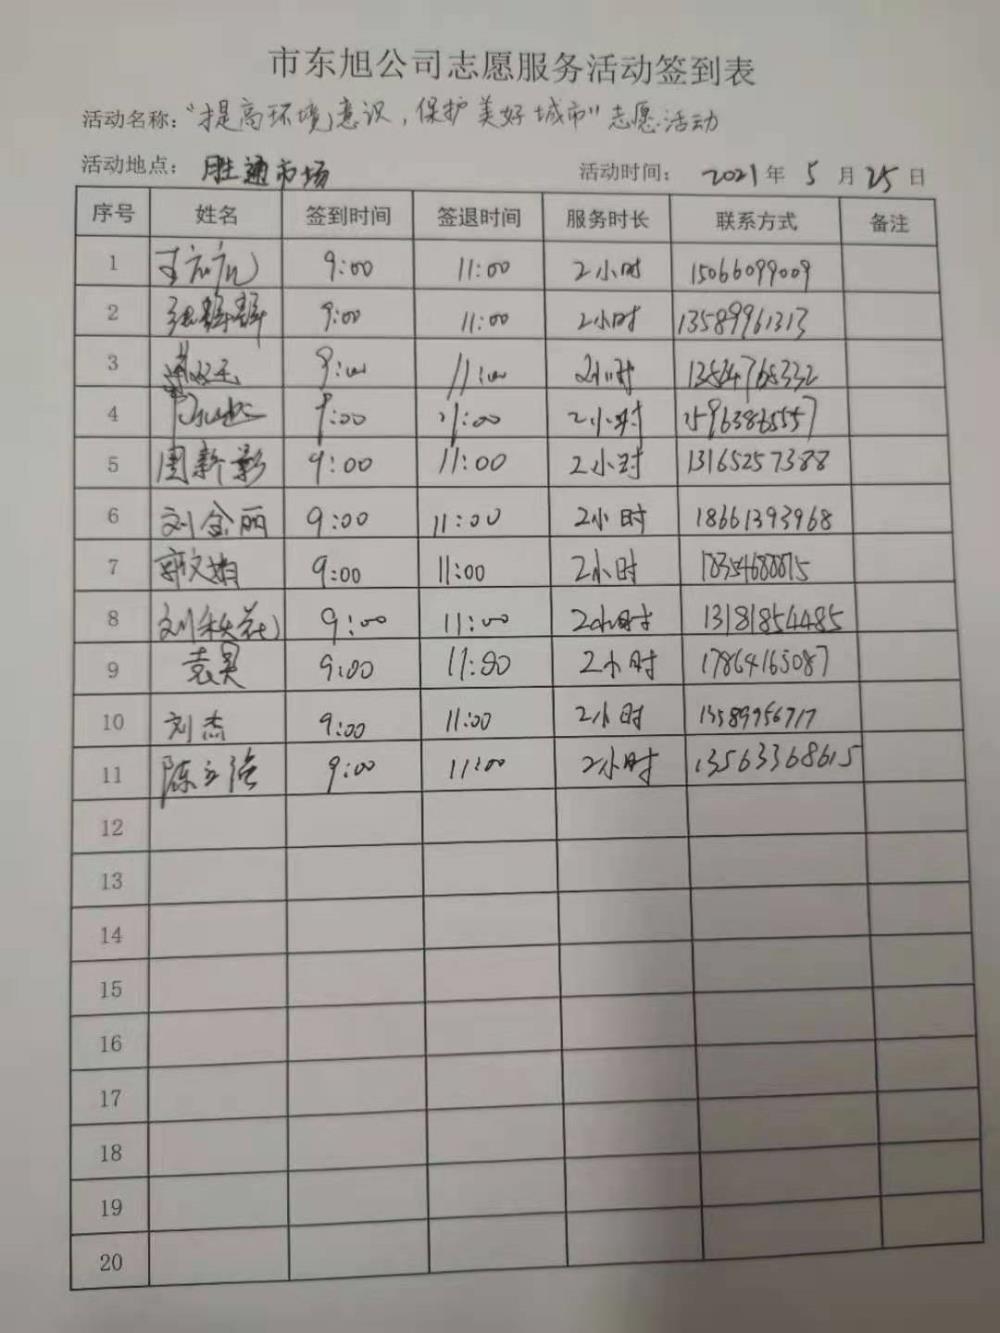 市东旭公司志愿服务活动签到表
活动名称："提高环境意识，保护美好城市"志愿活动
活动地点：胜通市场 活动时间：2021年5月25日
序号 姓名 签到时间 签退时间 服务时长 联系方式 备注
1 9:00 11:00 2小时 15066099009
2 9:00 11:00 2小时 13589961313
3 9:00 11:00 2小时
4 9:00 11:00 2小时 15963865557
5 周新影 9:00 11:00 2小时 13165257388
6 刘金丽 9:00 11:00 2小时 18661393968
7 郭文娟 9:00 11:00 2小时 18354688815
8 刘秩花 9:00 11:00 2小时 13181854485
9 袁昊 9:00 11:00 2小时 17864165087
10 刘杰 9:00 11:00 2小时 13589956717
11 陈立强 9:00 11:00 2小时 13563368615
12
13
14
15
16
17
18
19
20